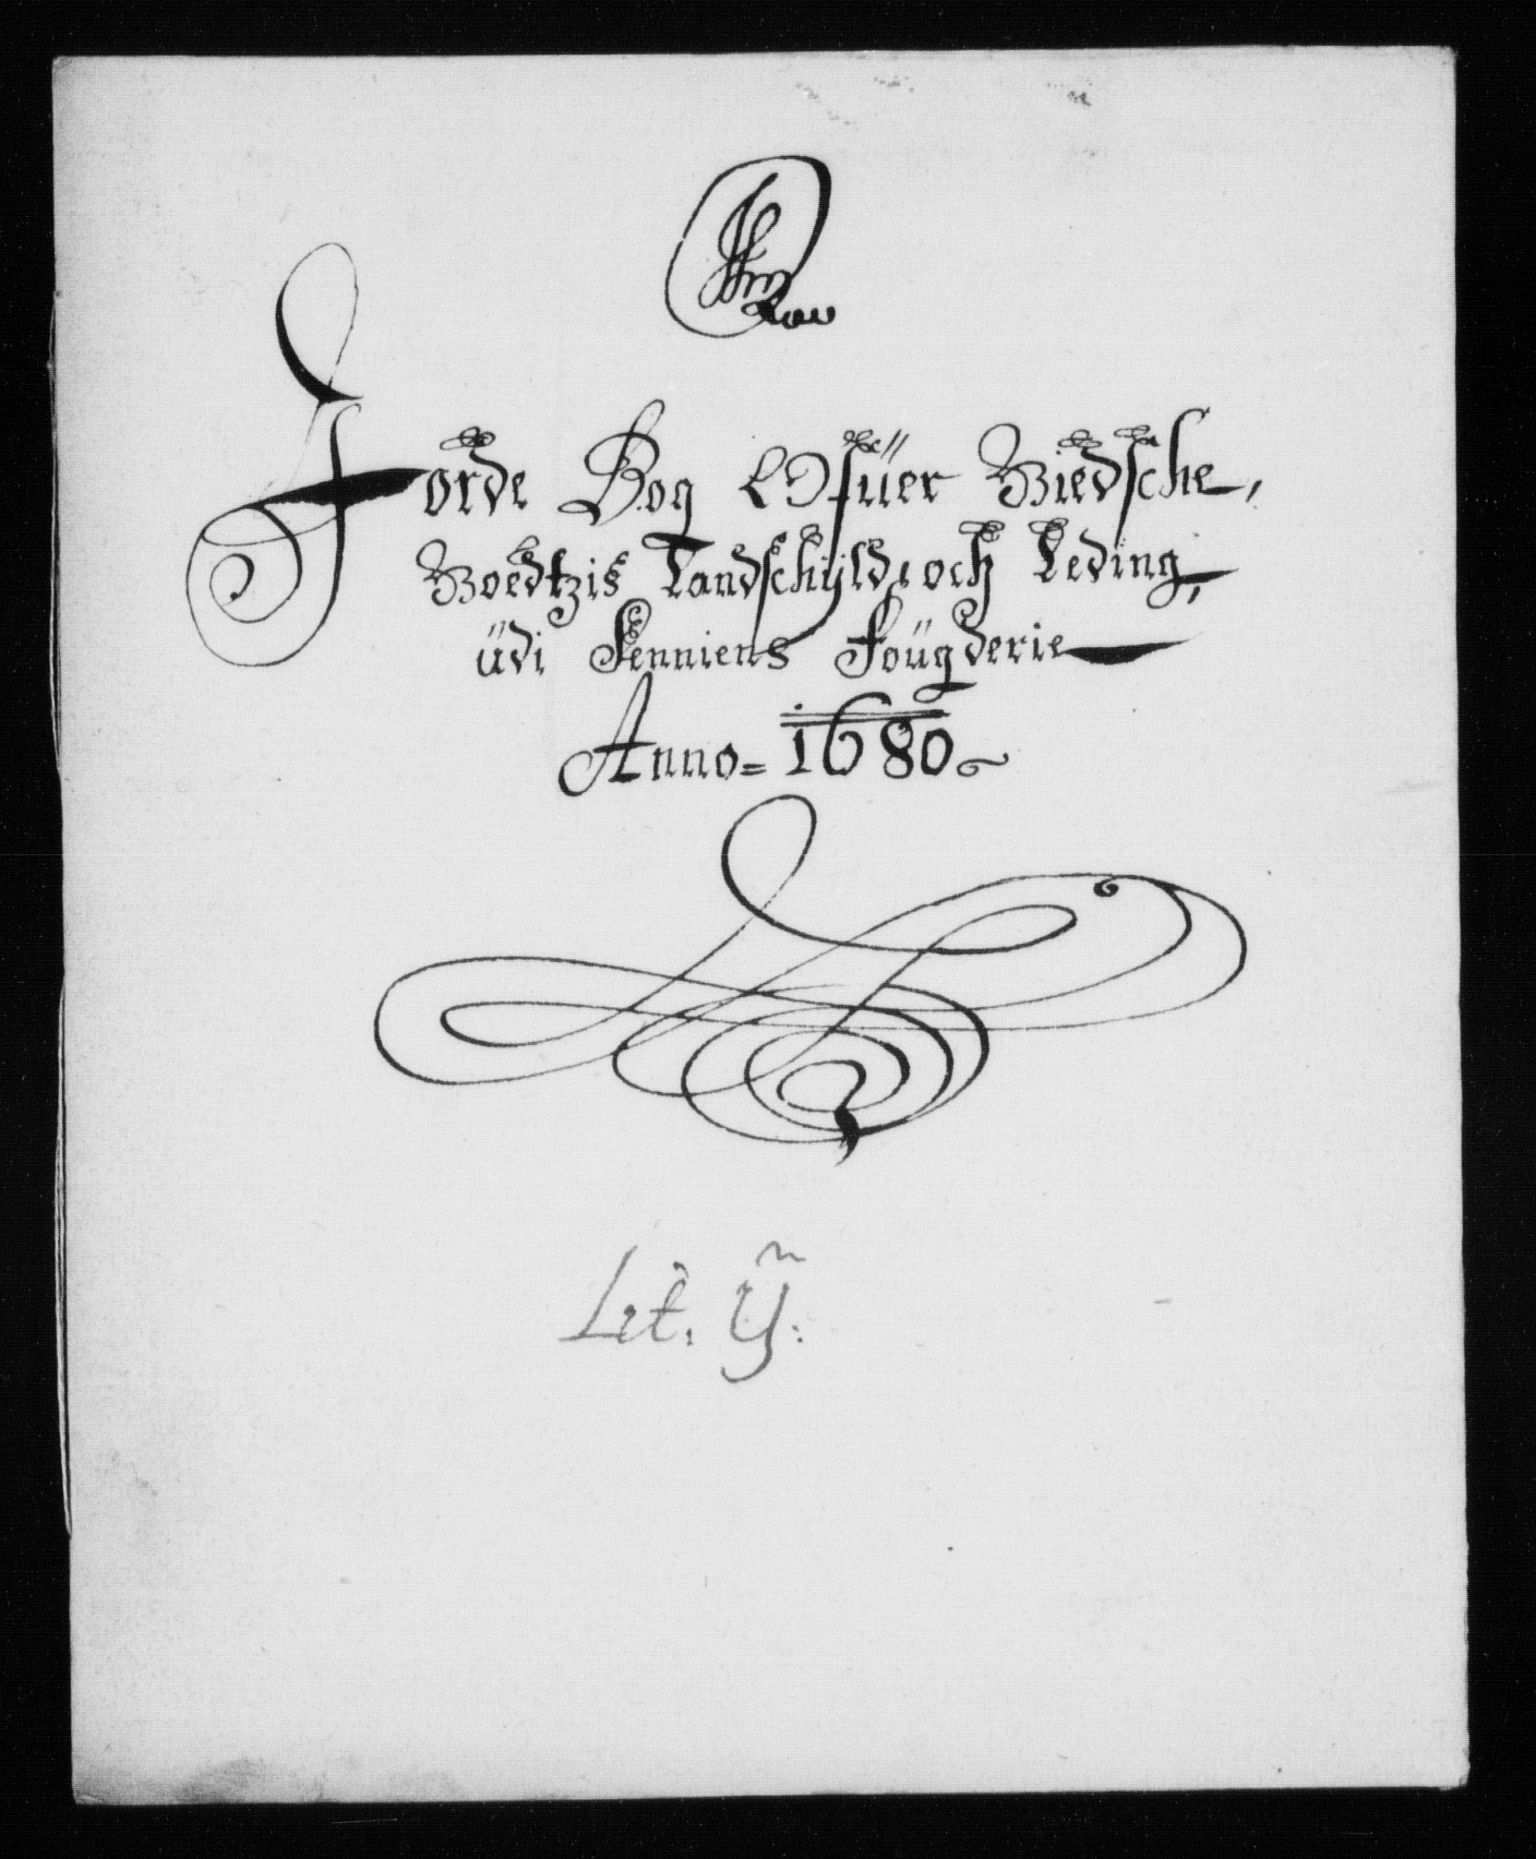 Jorde Bog Offuer Biedsche,
Boedtzis Landschyld, och Leding,
üdi Senniens Foügderie
Anno= 1680
Lit. Ÿ: